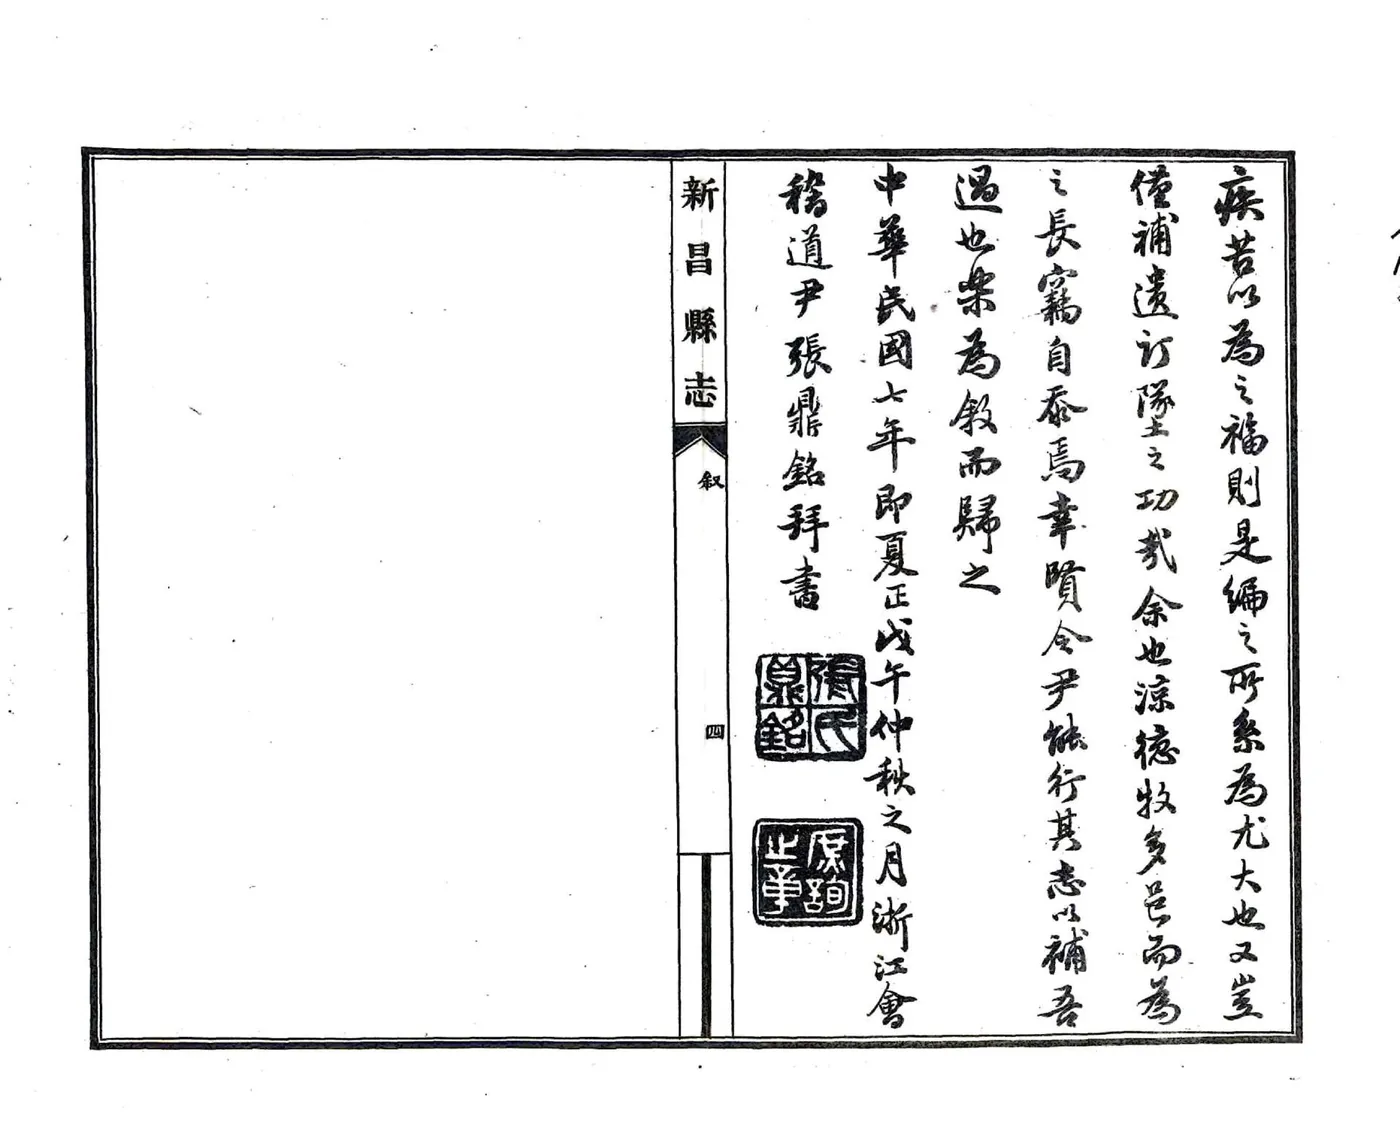 疾苦以為之福則是編之所系為尤大也又豈
僅補遺訂墜之功哉余也涼德牧多邑而為
之長竊自忝焉幸賢令尹能行其志以補吾
過也樂為敘而歸之
中華民國七年即夏正戊午仲秋之月浙江會
稽道尹張鼎銘拜書
張氏鼎銘
之章
新昌縣志
叙
四